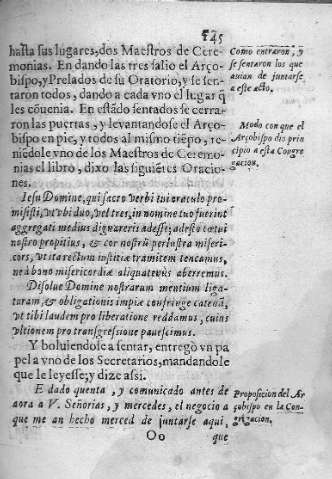 145
hasta sus lugares, dos Maestros de Cere-
monias. En dando las tres salio el Arço-
bispo, y Prelados de su Oratorio, y se sen-
taron todos, dando a cada vno el lugar q̃
les cõuenia. En estãdo sentados se cerra-
ron las puertas, y leuantandose el Arço-
bispo en pie, y todos al mismo tiẽpo, te-
niẽdole vno de los Maestros de Ceremo-
nias el libro, dixo las siguiẽtes Oracio-
nes.
Como entraron, y
se sentaron los que
auian de juntarse
a este acto.
Modo con que el
Arçobispo dio prin-
cipio a esta Congre
gacion.
Iesu Domine, qui sacro verbi tui oraculo pro-
misisti, vt vbi duo, vel tres, in nomine tuo fuerint
aggregati medius dignareris adesse; adesto cœtui
nostro propitius, & cor nostrũ perlustra miseri-
cors, vt ita rectum iustitiæ tramitem teneamus,
ne à bono misericordiæ aliquatenùs aberremus.
Dissolue Domine nostrarum mentium liga-
turam, & obligationis impiæ confringe catenã,
vt tibi laudem pro liberatione reddamus, cuius
vltionem pro transgressione pauescimus.
Y boluiendose a sentar, entregò vn pa
pel a vno de los Secretarios, mandandole
que le leyesse; y dize assi.
E dado quenta, y comunicado antes de
aora a V. Señorias, y mercedes, el negocio a
que me an hecho merced de juntarse aqui,
Proposicion del Ar
çobispo en la Con-
gregacion.
Oo que